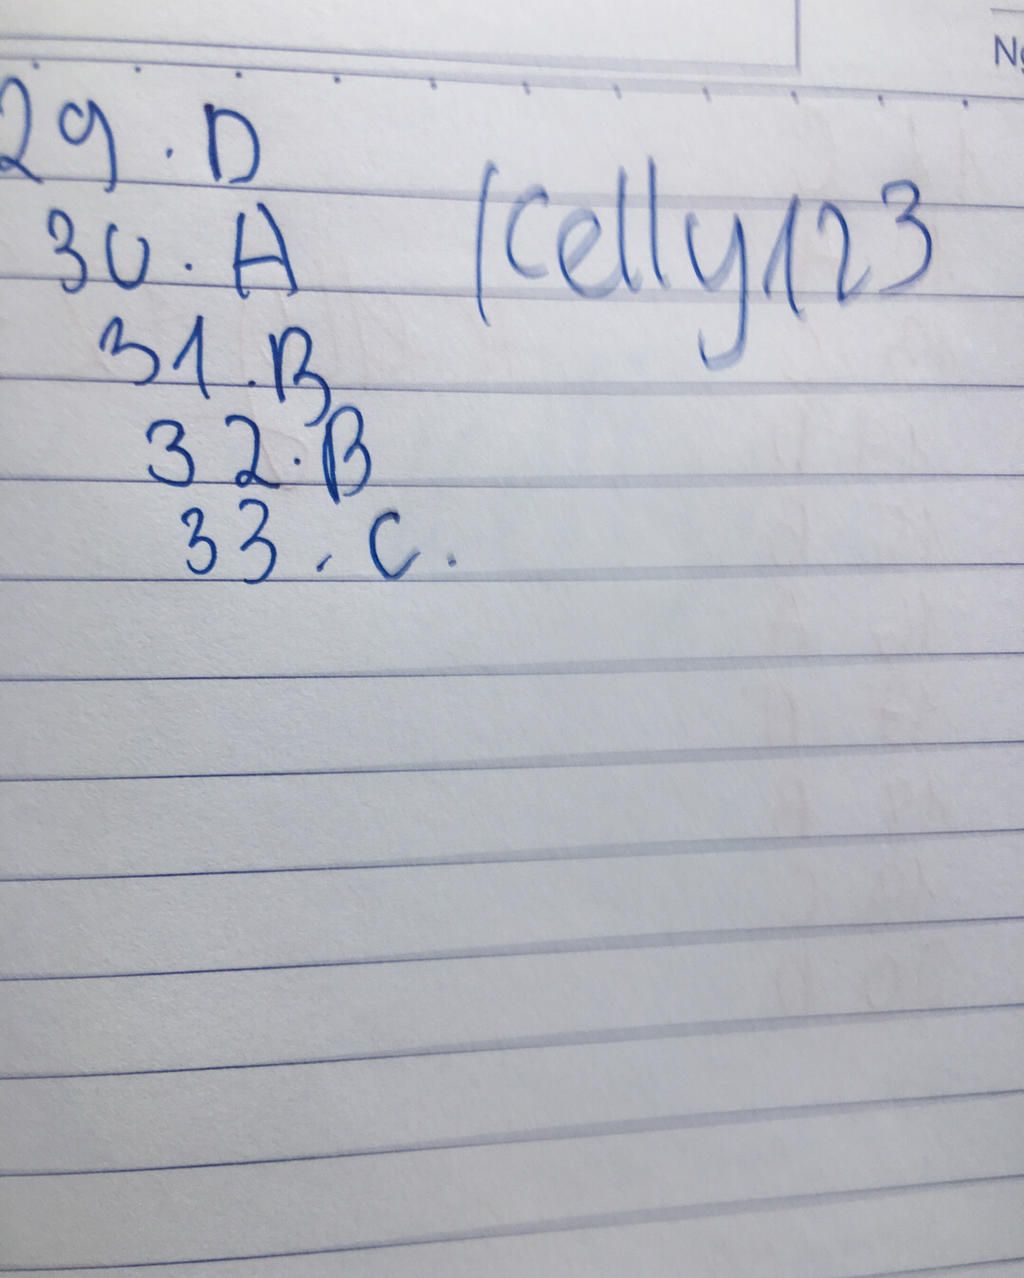 29. D
30. A
Kelly123
31. B
32. B
33. C.